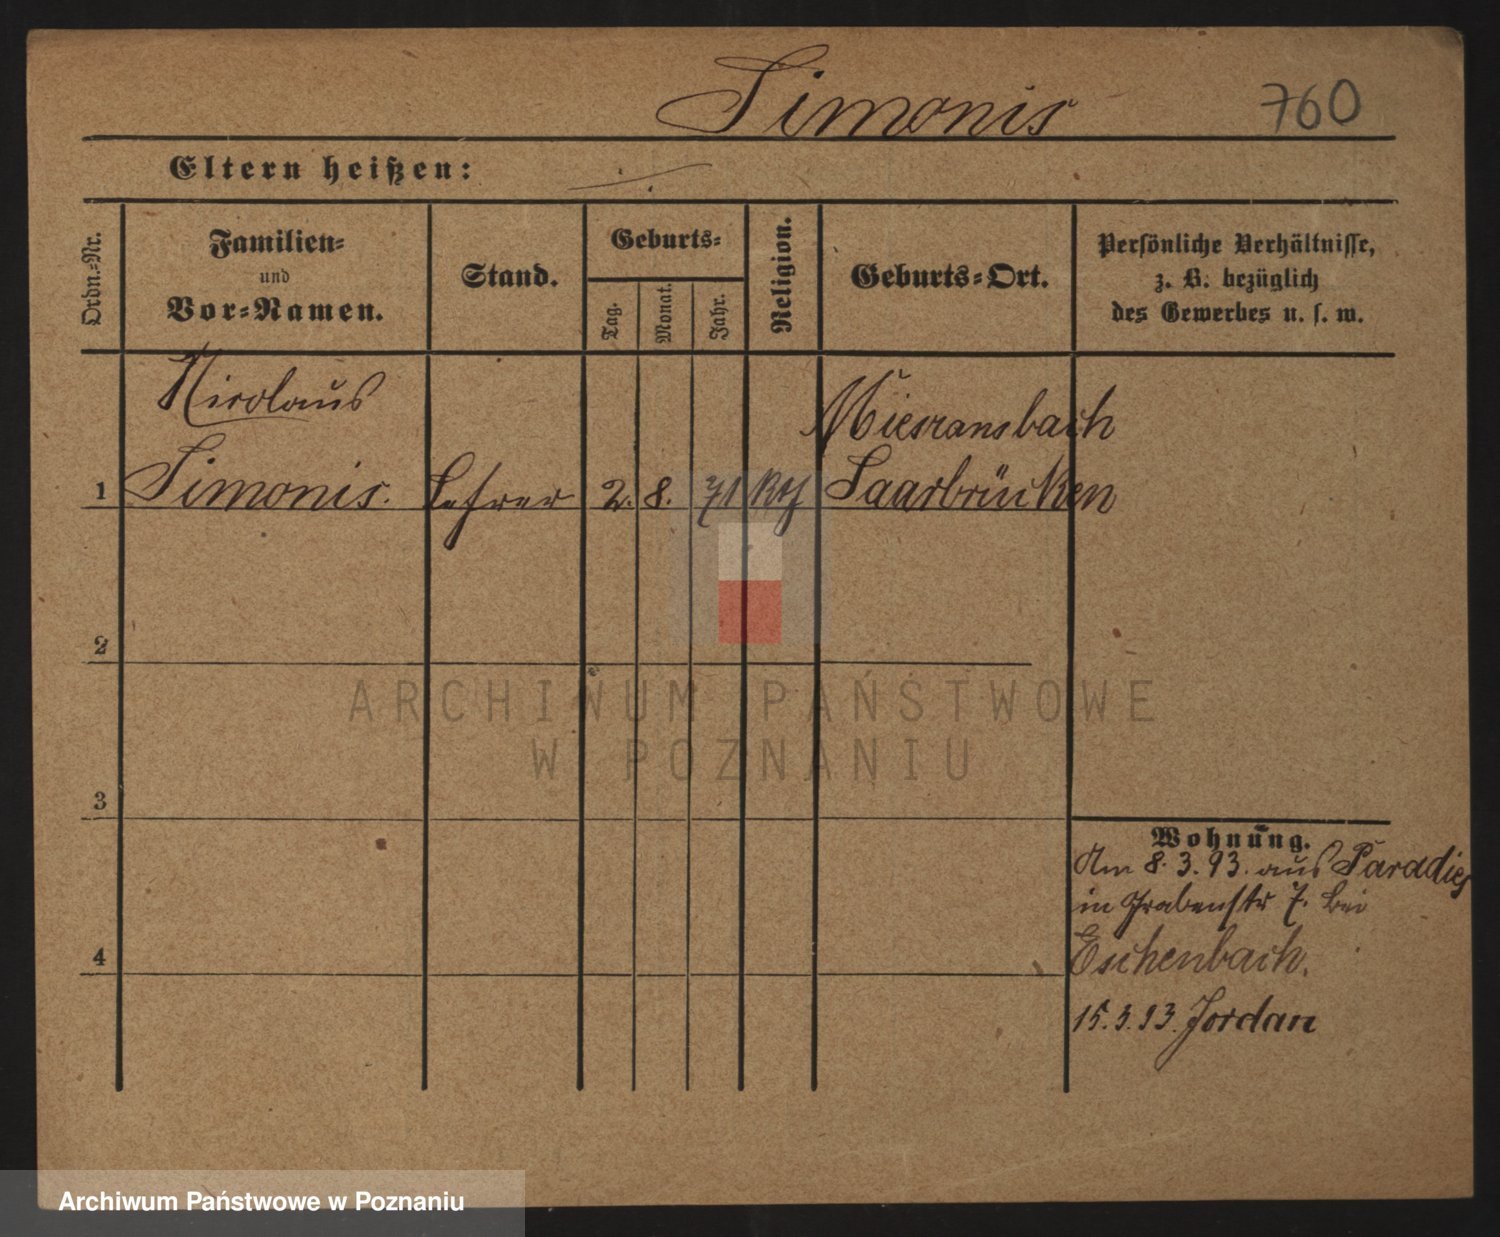 Simonis
760
Eltern heißen:
Ordn.-Nr.
Familien-
und
Vor-Namen.
Stand.
Geburts-
Tag.
Monat.
Jahr.
Religion.
Geburts-Ort.
Persönliche Verhältnisse,
z. B. bezüglich
des Gewerbes u. s. w.
Nicolaus
Simonis. Lehrer 2. 8. 71 Saarbrücken
1
2
3
4
Wohnung.
Am 8.3.93. aus Paradies
in Grabenstr 7. bei
Eschenbach.
15.3.93. Jordan
ARCHIWUM PAŃSTWOWE
W POZNANIU
Archiwum Państwowe w Poznaniu